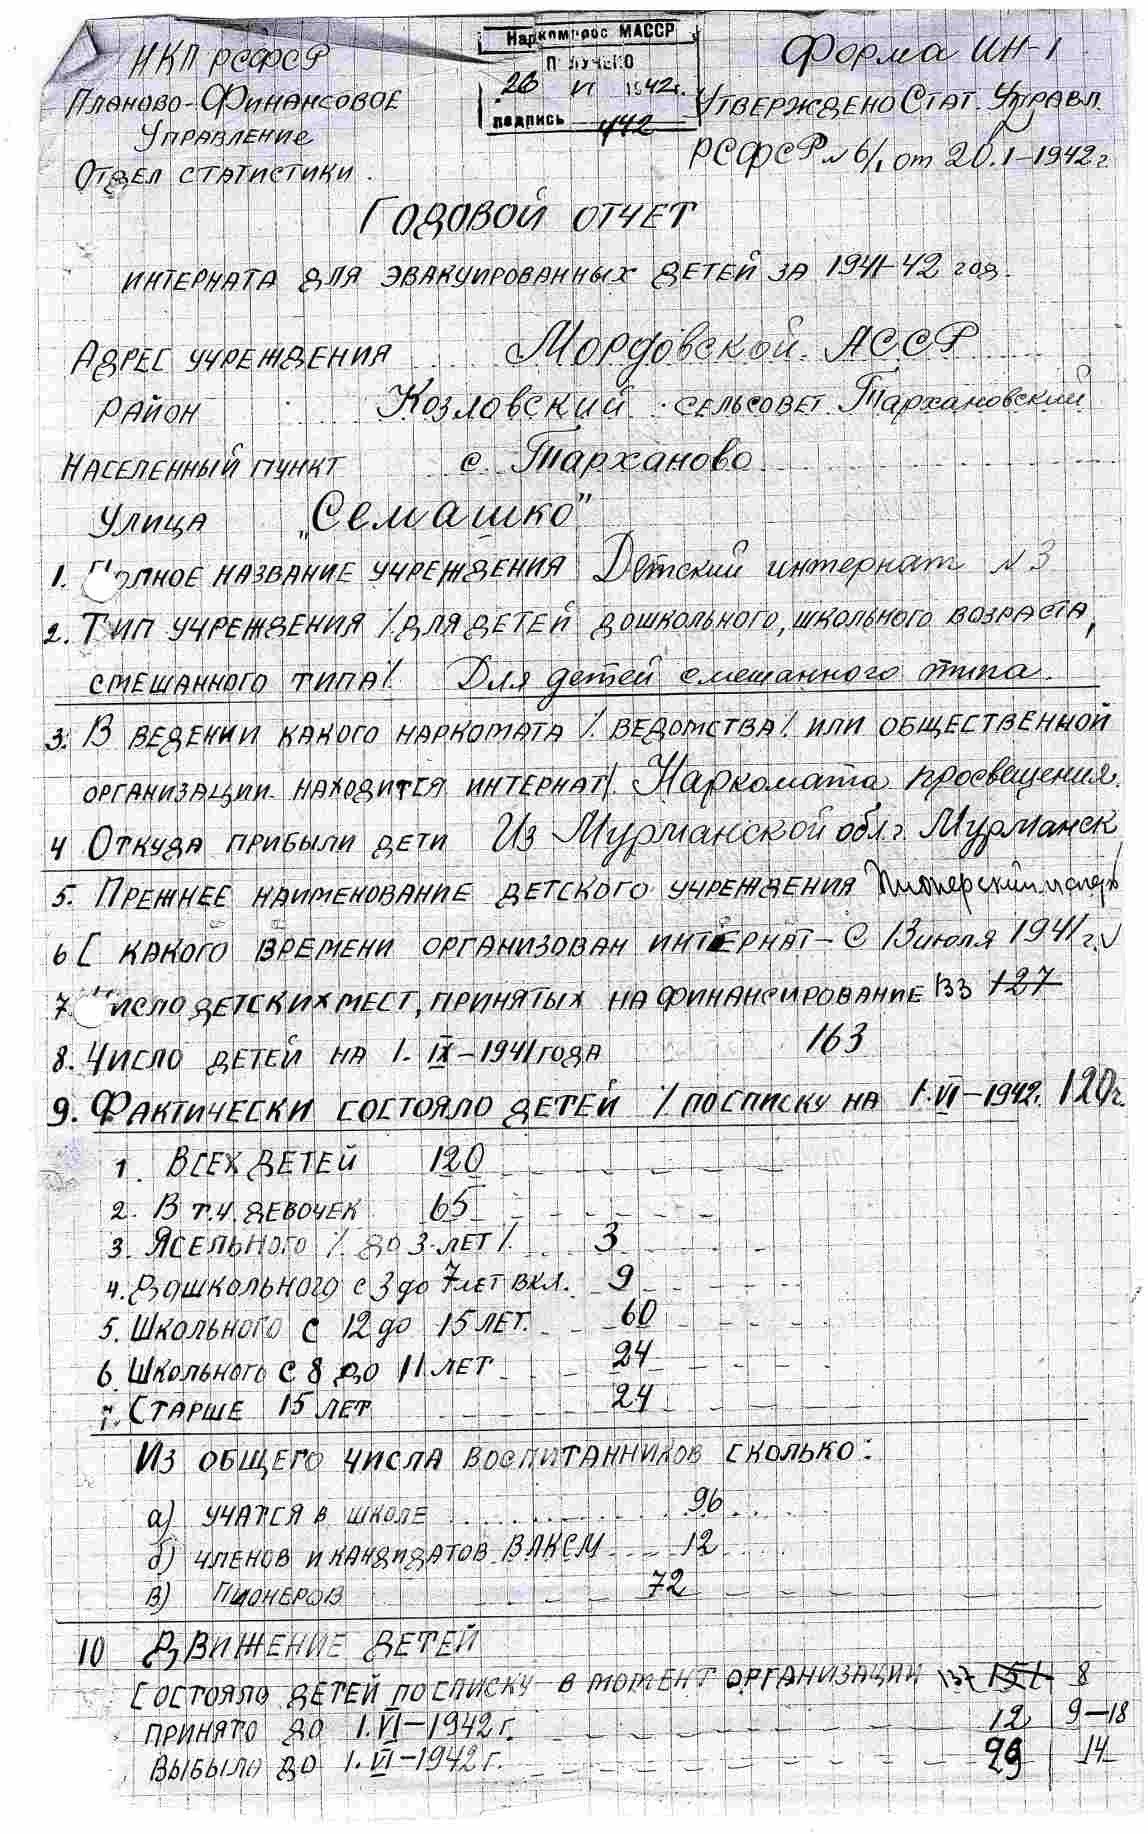 НКП РСФСР
Планово-Финансовое
Управление
Отдел статистики.
Наркомпрос МАССР
ПОЛУЧЕНО
26 VI 1942г.
подпись 442
Форма ИН-1
Утверждено Стат. Управл.
РСФСР №6/1 от 20.I-1942г.
Годовой отчет
интерната для эвакуированных детей за 1941-42 год.
Адрес учреждения Мордовской АССР
район Козловский сельсовет Тархановский
Населенный пункт с. Тарханово
Улица „Семашко"
1. Полное название учреждения Детский интернат №3
2. Тип учреждения /для детей дошкольного, школьного возраста,
смешанного типа/. Для детей смешанного типа.
3. В ведении какого наркомата /ведомства/ или общественной
организации находится интернат/. Наркомата просвещения.
4 Откуда прибыли дети Из Мурманской обл. г. Мурманск
5. Прежнее наименование детского учреждения Пионерский лагерь
6 С какого времени организован интернат - С 13 июля 1941 г.
7. Число детских мест, принятых на финансирование 133 127
8. Число детей на 1. IX-1941 года 163
9. Фактически состояло детей /по списку на 1.VI-1942. 120 г.
1. Всех детей 120
2. В т.ч. девочек 65
3. Ясельного /до 3-лет/. 3
4. Дошкольного с 3 до 7 лет вкл. 9
5. Школьного с 12 до 15 лет. 60
6. Школьного с 8 до 11 лет 24
7. Старше 15 лет 24
Из общего числа воспитанников сколько:
а) учатся в школе 96
б) членов и кандидатов ВЛКСМ 12
в) пионеров 72
10 Движение детей
Состояло детей по списку в момент организации 137 151 8
принято до 1.VI-1942 г. 12 9-18
выбыло до 1.VI-1942 г. 29 14